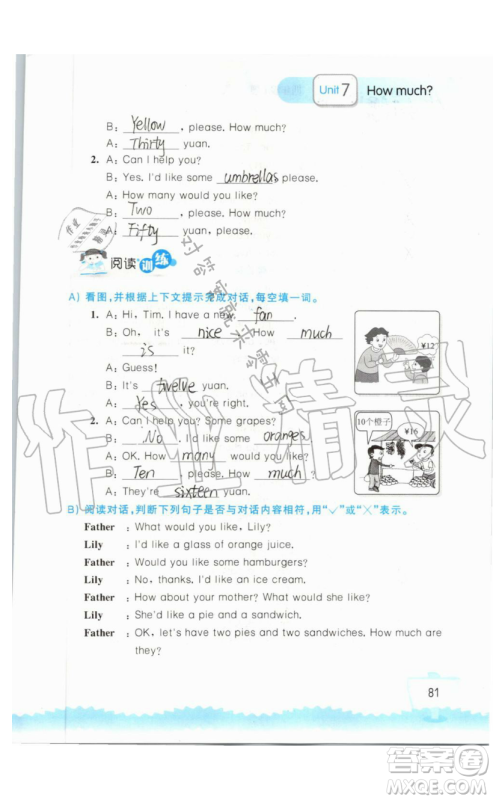 Unit 7 How much?
B: Yellow, please. How much?
A: Thirty yuan.
2. A: Can I help you?
B: Yes. I'd like some umbrellas please.
A: How many would you like?
B: Two
A: Fifty yuan, please.
阅读训练
A) 看图,并根据上下文提示完成对话,每空填一词。
1. A: Hi, Tim. I have a new fan.
B: Oh, it's nice. How much
is it?
A: Guess!
¥12
B: It's twelve yuan.
A: Yes, you're right.
2. A: Can I help you? Some grapes?
10个橙子
¥16
B: No. I'd like some oranges
A: OK. How many would you like?
B: Ten, please. How much?
A: They're sixteen yuan.
B) 阅读对话,判断下列句子是否与对话内容相符,用“✓”或“×”表示。
Father: What would you like, Lily?
Lily: I'd like a glass of orange juice.
Father: Would you like some hamburgers?
Lily: No, thanks. I'd like an ice cream.
Father: How about your mother? What would she like?
Lily: She'd like a pie and a sandwich.
Father: OK, let's have two pies and two sandwiches. How much are
they?
81
作业精灵
答案圈
MXQE.COM